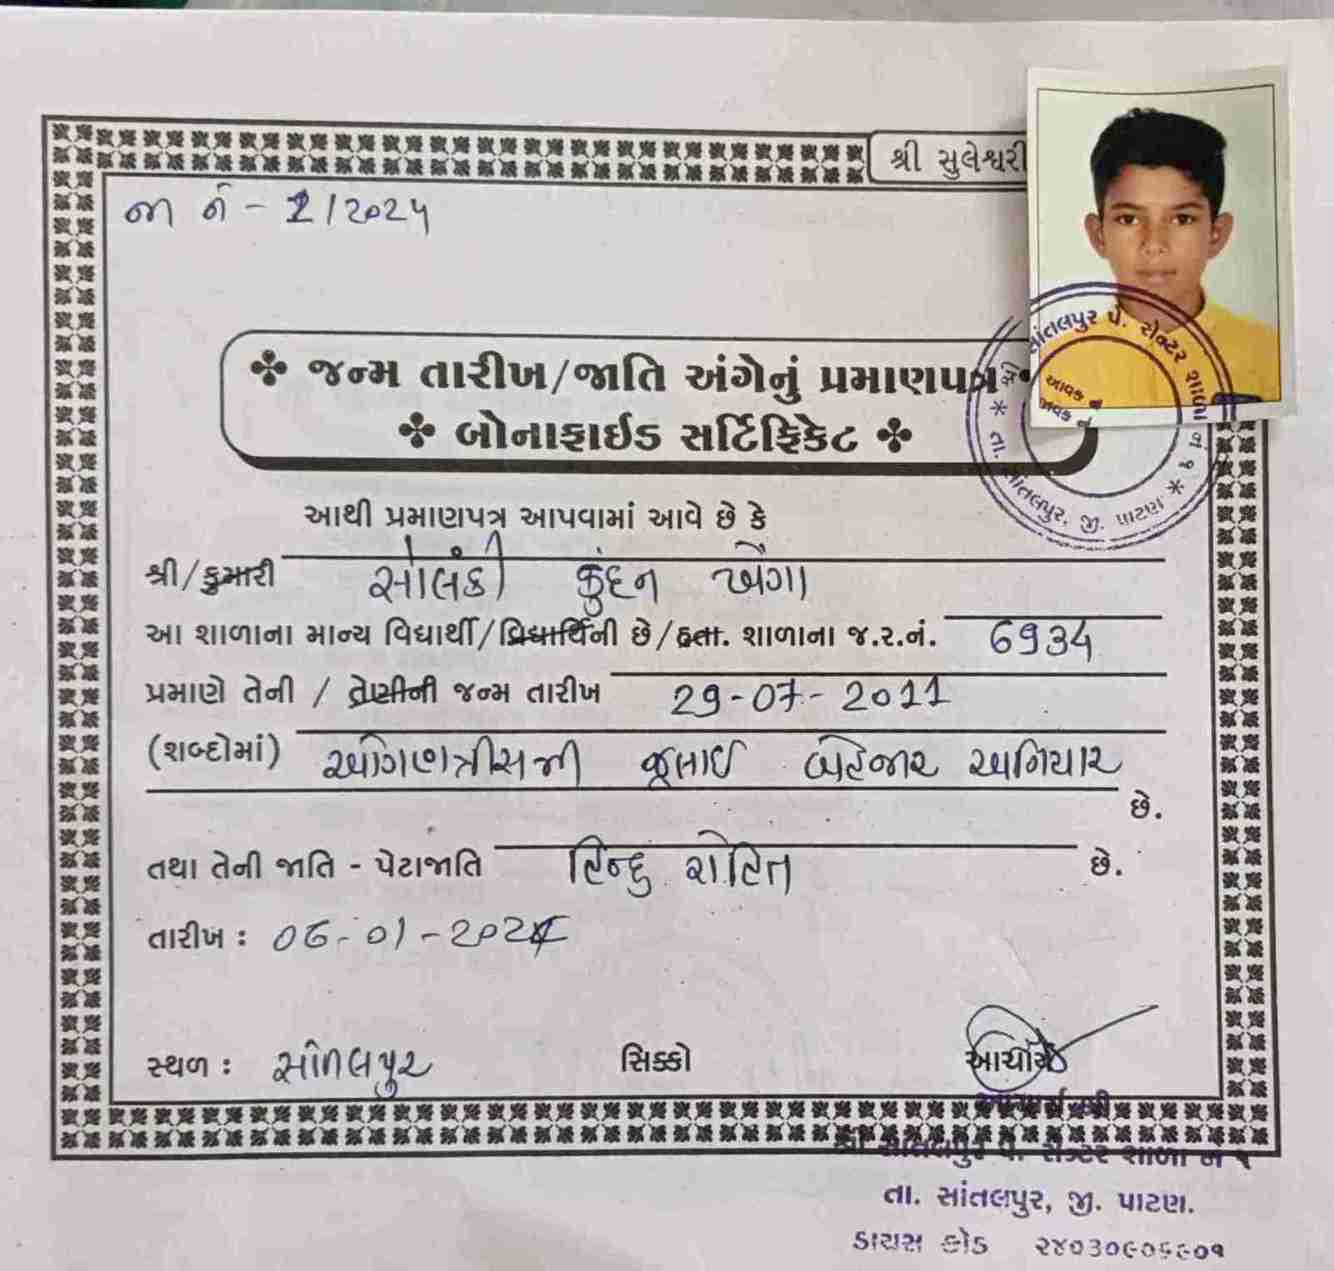 શ્રી સુલેશ્વરી
જા નં - 1/2025
જન્મ તારીખ/જાતિ અંગેનું પ્રમાણપત્ર
બોનાફાઈડ સર્ટિફિકેટ
આથી પ્રમાણપત્ર આપવામાં આવે છે કે
શ્રી/કુમારી સોલંકી કુંદન
આ શાળાના માન્ય વિદ્યાર્થી/વિદ્યાર્થિની છે/હતા. શાળાના જ.ર.નં. 6934
પ્રમાણે તેની / તેણીની જન્મ તારીખ 29-07-2011
(શબ્દોમાં) ઓગણત્રીસમી જૂલાઈ બેહજાર અગિયાર
છે.
તથા તેની જાતિ - પેટાજાતિ હિન્દુ રોહિત છે.
તારીખ : 06-01-202
સ્થળ : સાંતલપુર સિક્કો આચાર્ય
આચાર્ય શ્રી
શ્રી સાંતલપુર પે. સેન્ટર શાળા નં ૧
તા. સાંતલપુર, જી. પાટણ.
ડાયસ કોડ ૨૪૦૩૦૯૦૬૯૦૧
સાંતલપુર પે. સેન્ટર શાળા નં ૧
તા. સાંતલપુર, જી. પાટણ
આવક નં
જાવક નં